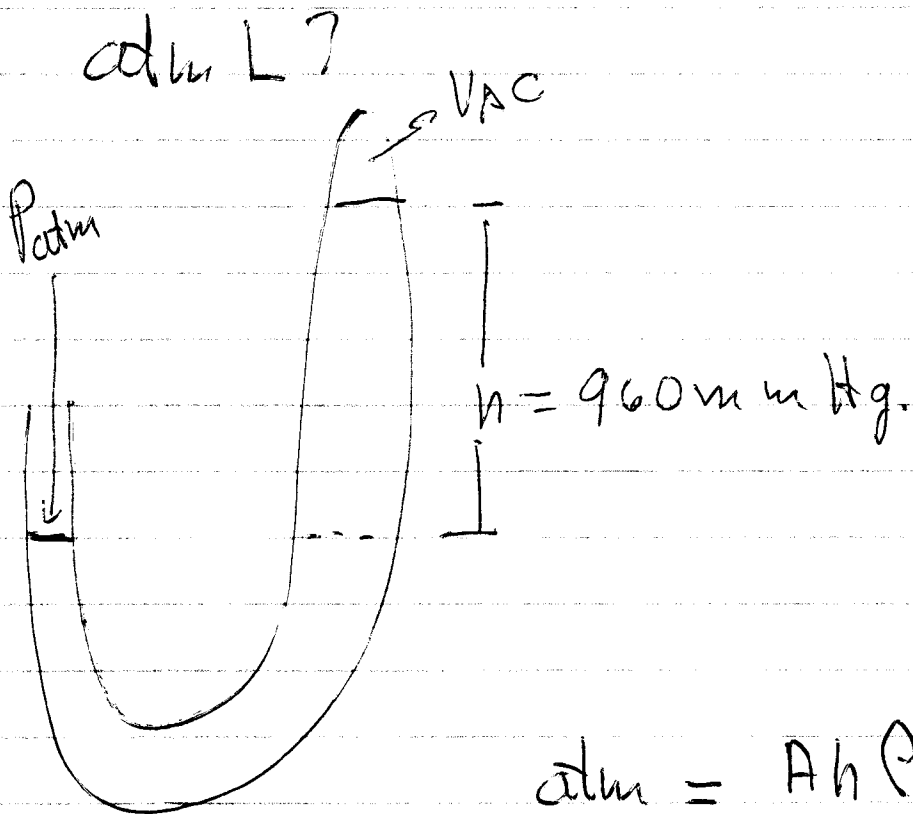 atm L?
VAC
Patm
h = 960 m m Hg.
atm = A h ρ